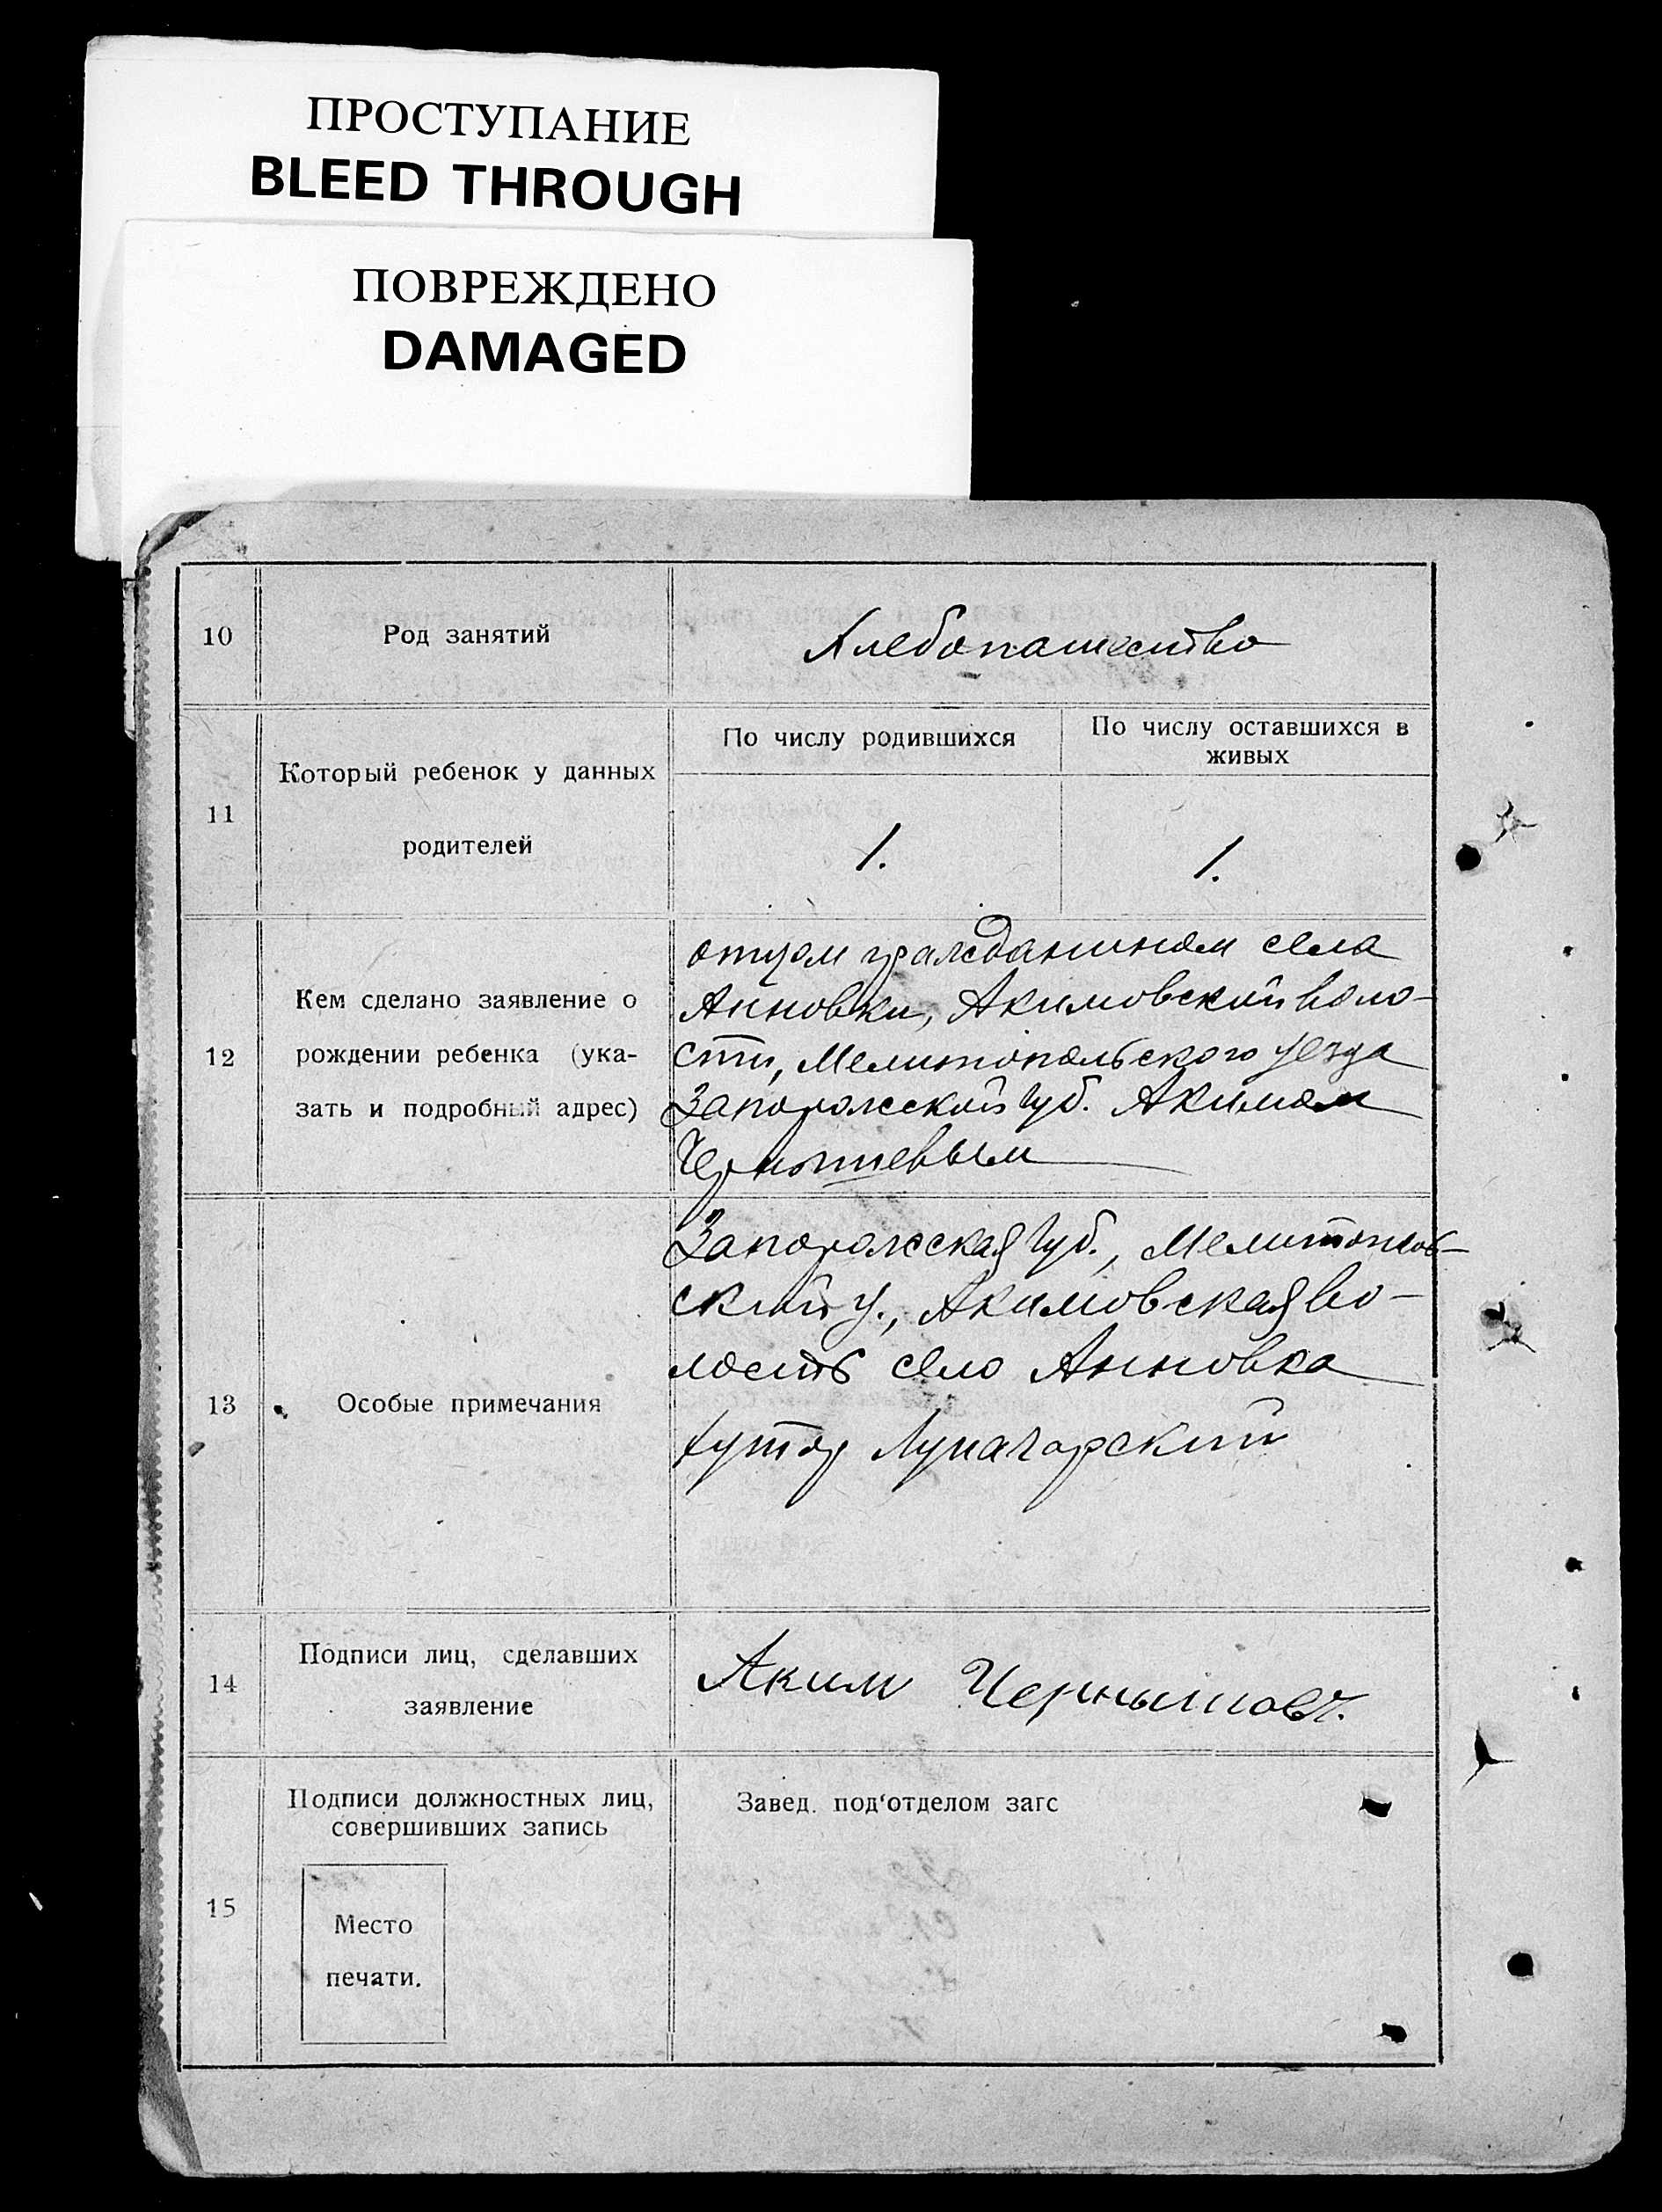 ПРОСТУПАНИЕ
BLEED THROUGH
ПОВРЕЖДЕНО
DAMAGED
10 Род занятий Хлебопашество
11 Который ребенок у данных родителей
По числу родившихся
По числу оставшихся в живых
1.
1.
12 Кем сделано заявление о
рождении ребенка (ука-
зать и подробный адрес)
отцом гражданином села
Анновки, Акимовский воло-
сти, Мелитопольского уезда
Запорожской губ. Акимом
Чернышевым
13 Особые примечания
Запорожская губ., Мелитополь-
ский у., Акимовская во-
лость село Анновка
хутор Луначарский
14 Подписи лиц, сделавших
заявление
Аким Чернышовъ.
15 Подписи должностных лиц,
совершивших запись
Завед. под'отделом загс
Место
печати.